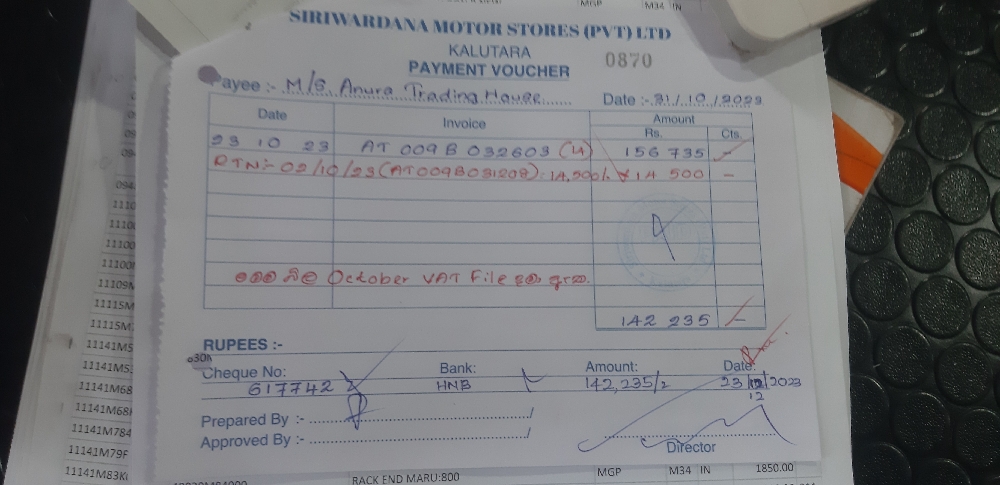 MGP M34 IN
SIRIWARDANA MOTOR STORES (PVT) LTD
KALUTARA
PAYMENT VOUCHER 0870
Payee :- M/S. Anura Trading House Date :- 31/10/2023
Date Invoice Amount
Rs. Cts.
23 10 23 AT 009B 032603 (4) 156 735 -
RTN:- 02/10/23 (AT009B031208) - 14,500/- 14 500 -
October VAT File
142 235 -
RUPEES :-
Cheque No: Bank: Amount: Date:
617742 HNB 142,235/= 23/12/2023
12
Prepared By :-
Approved By :-
Director
11109M
11115M
11115M
11141M5
11141M5
11141M68
11141M68
11141M784
11141M79F
11141M83K
RACK END MARU:800 MGP M34 IN 1850.00